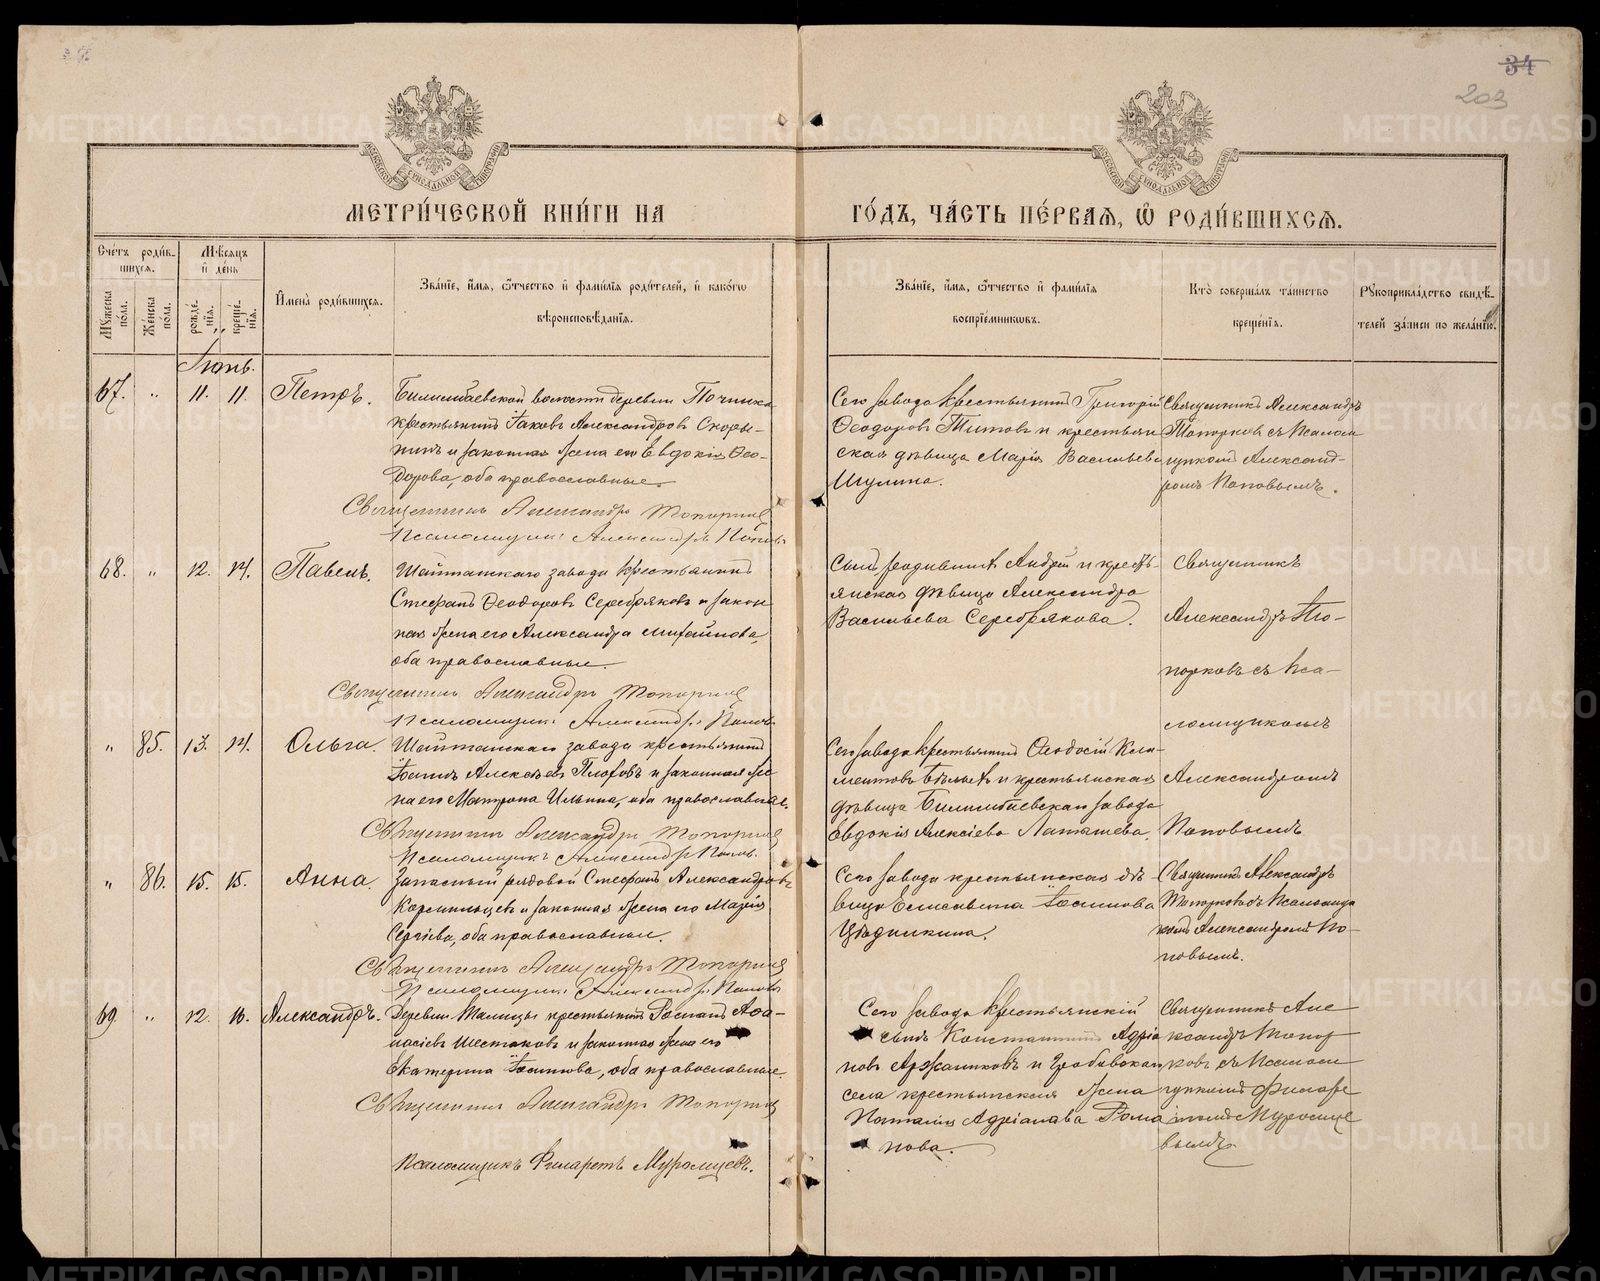 34
203
МЕТРИ́ЧЕСКОЙ КНИ́ГИ НА ГО́ДЪ, ЧА́СТЬ ПЕ́РВАѦ, Ѽ РОДИ́ВШИХСѦ.
Сче́тъ роди́в-
шихся.
Мѣ́сяцъ
и҆ де́нь
Мꙋ́жеска по́ла.
Же́нска по́ла.
рожде́нїя.
креще́нїя.
И҆мена̀ роди́вшихся.
Зва́нїе, и҆́мя, ѻ҆́тчество и҆ фами́лїя роди́телей, и҆ како́гѡ
вѣроисповѣ́данїя.
Зва́нїе, и҆́мя, ѻ҆́тчество и҆ фами́лїя
воспрїе́мниковъ.
Кто̀ соверша́лъ та́инство
креще́нїя.
Рꙋкоприкла́дство свидѣ́-
телей за́писи по жела́нїю.
Іюнь.
67. " 11. 11. Петръ.
Билимбаевской волости деревни Починка
крестьянинъ Іаковъ Александровъ Скоры-
нинъ и законная жена его Евдокія Ѳео-
дорова, оба православные.
Священникъ Александръ Топорковъ
Псаломщикъ Александръ Поповъ
Сего завода крестьянинъ Григорій
Ѳеодоровъ Титовъ и крестьян
ская дѣвица Марія Васильева
Шулина.
Священникъ Александръ
Топорковъ съ псалом
щикомъ Александ-
ромъ Поповымъ.
68. " 12. 14. Павелъ.
Шайтанскаго завода крестьянинъ
Стефанъ Ѳеодоровъ Серебряковъ и закон
ная жена его Александра Михайлова,
оба православные.
Священникъ Александръ Топорковъ
Псаломщикъ Александръ Поповъ
Сынъ родившаго Андрей и кресть-
янская дѣвица Александра
Васильева Серебрякова.
Священникъ
Александръ То-
порковъ съ пса-
ломщикомъ
Александромъ
Поповымъ
" 85. 13. 14. Ольга.
Шайтанскаго завода крестьянинъ
Іоаннъ Алексѣевъ Плоховъ и законная же
на его Матрона Ильина, оба православные.
Священникъ Александръ Топорковъ
Псаломщикъ Александръ Поповъ.
Сего завода крестьянинъ Ѳеодосій Кли-
ментовъ Бѣлыхъ и крестьянская
дѣвица Билимбаевскаго завода
Евдокія Алексіева Латышева.
" 86. 15. 15. Анна.
Запасный рядовой Стефанъ Александровъ
Кормильцевъ и законная жена его Марія
Сергіева, оба православные.
Священникъ Александръ Топорковъ
Псаломщикъ Александръ Поповъ
Сего завода крестьянская дѣ
вица Елисавета Іоаннова
Цѣдилкина.
Священникъ Александръ
Топорковъ съ псаломщи
комъ Александромъ По-
повымъ.
69. " 12. 16. Александръ.
Деревни Талицы крестьянинъ Романъ Аѳа-
насіевъ Шестаковъ и законная жена его
Екатерина Іоаннова, оба православные.
Священникъ Александръ Топорковъ
Псаломщикъ Филаретъ Муромцевъ.
Сего завода крестьянскій
сынъ Константинъ Адріа
новъ Аржанниковъ и Гробовскаго
села крестьянская жена
Наталія Адріанова Рома
нова.
Священникъ Але
ксандръ Топор
ковъ съ псалом
щикомъ Филаре
томъ Муромце
вымъ
METRIKI.GASO-URAL.RU